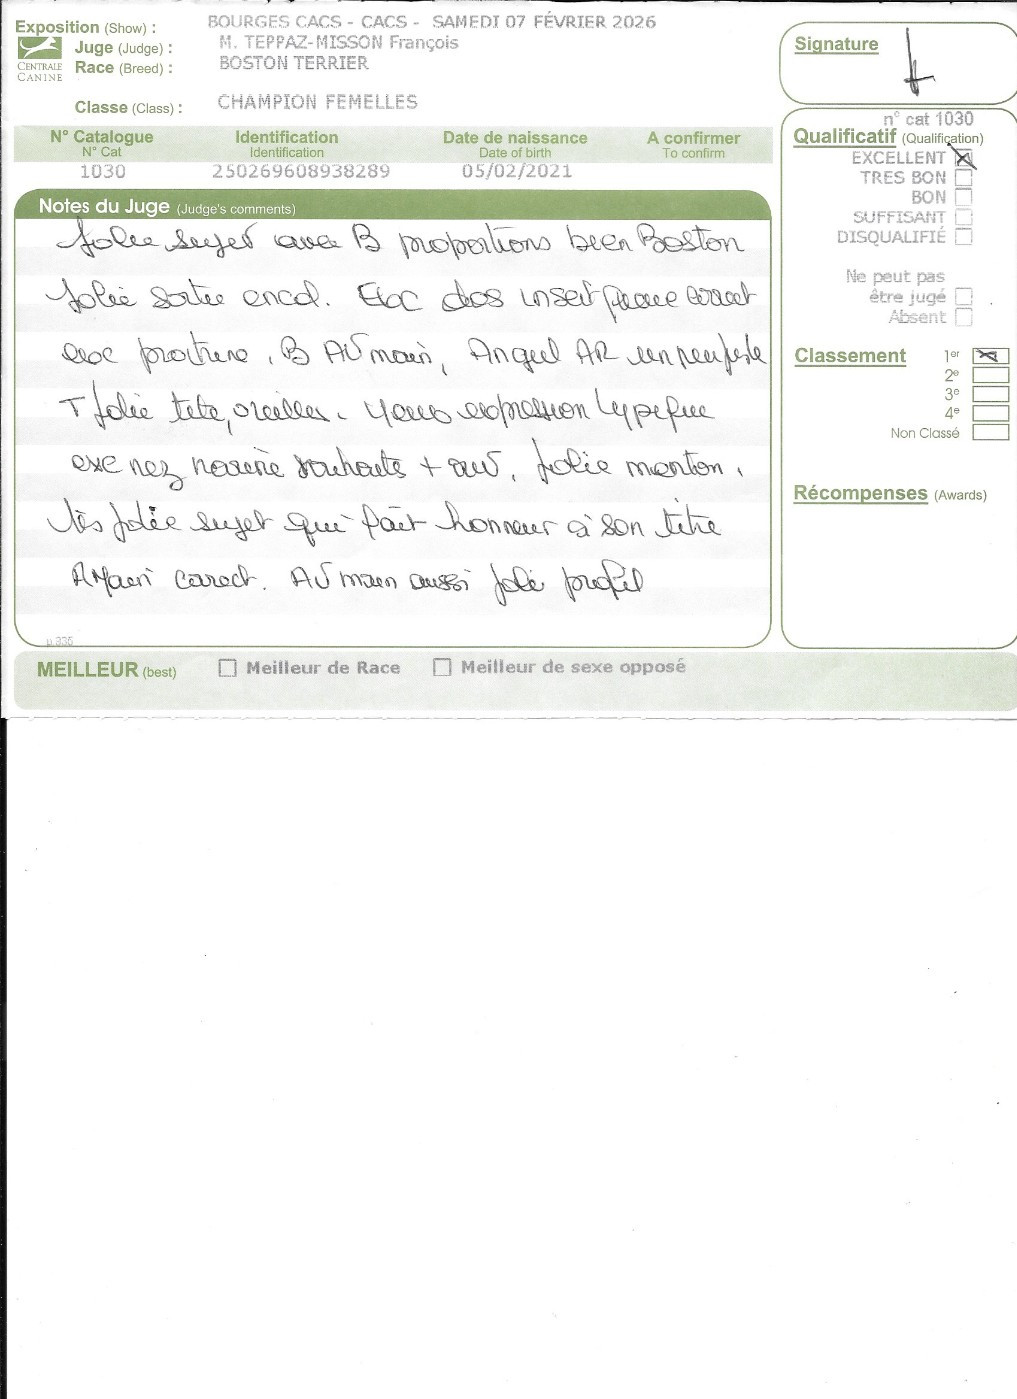 Exposition (Show) : BOURGES CACS - CACS - SAMEDI 07 FÉVRIER 2026
Juge (Judge) : M. TEPPAZ-MISSON François
CENTRALE CANINE
Race (Breed) : BOSTON TERRIER
Classe (Class) : CHAMPION FEMELLES
N° Catalogue Identification Date de naissance A confirmer
N° Cat Identification Date of birth To confirm
1030 250269608938289 05/02/2021
Notes du Juge (Judge's comments)
Jolie sujet avec B proportions bien Boston
Jolie sortie encol. Exc dos correct
exc poitrine, B AV main, Angul AR un peu juste
T Jolie tête, oreilles. Yeux expression typique
exc nez souhaité + ouv, Jolie menton,
très jolie sujet qui fait honneur à son titre
correct. AV main aussi joli profil
p.335
MEILLEUR (best) Meilleur de Race Meilleur de sexe opposé
Signature
n° cat 1030
Qualificatif (Qualification)
EXCELLENT
TRES BON
BON
SUFFISANT
DISQUALIFIÉ
Ne peut pas
être jugé
Absent
Classement 1er
2e
3e
4e
Non Classé
Récompenses (Awards)